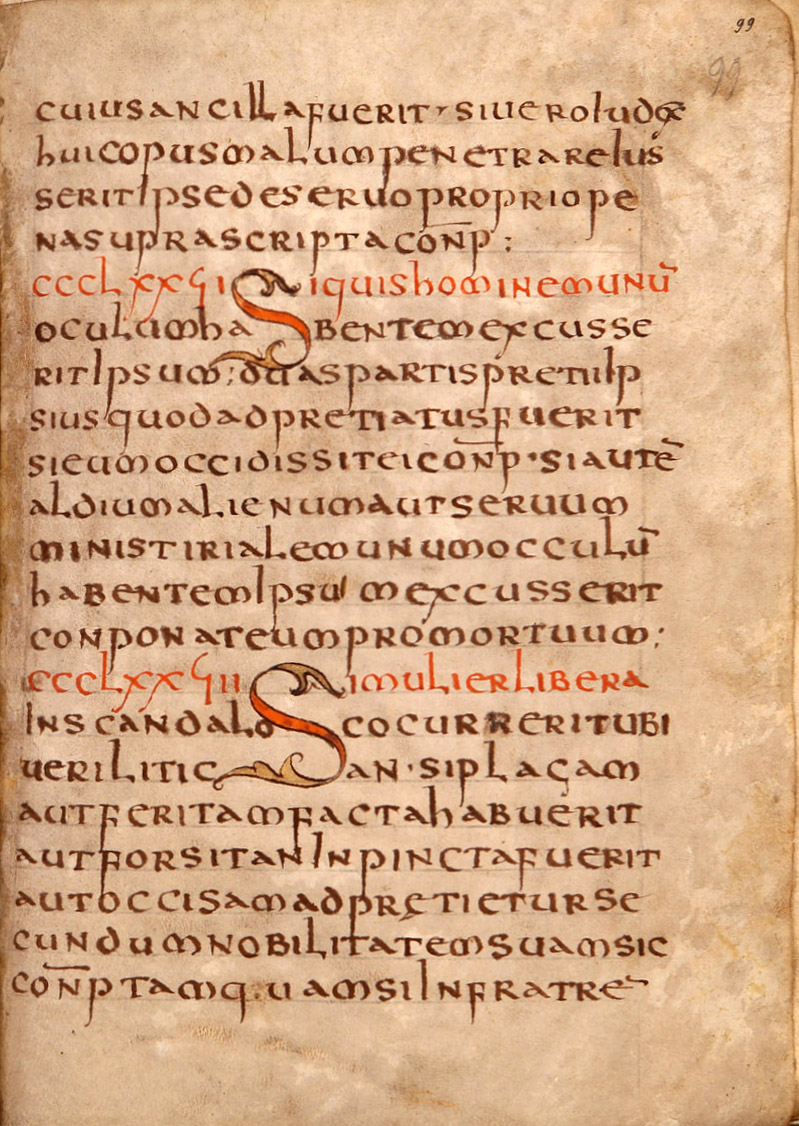 99
99
cuius ancilla fuerit · siuero iudex
huic opus malum penetrare ius
serit ipse de seruo proprio pe
nas uprascripta con̄p :
CCCLXXϛI Si quis hominem unū
oculum habentem exccusse
rit ipsum ; duas partis pretii ip
sius quod adpretiatus fuerit
si eum occidissit ei con̄p · si autē
aldium alienum aut seruum
ministirialem unum occulū
habentem ipsum exccusserit
conponat eum pro mortuum ;
CCCLXXϛII Si mulier libera
in scandalo cocurrerit ubi
ueri litic an · si placam
aut feritam facta habuerit
aut forsitan inpincta fuerit
aut occisam adpretietur se
cundum nobilitatem suam sic
con̄p tamq:uam si in fratrē